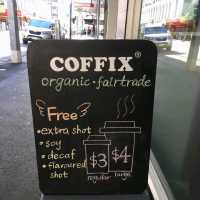 COFFIX®
organic · fairtrade
Free
• extra shot
• soy
• decaf
• flavoured
shot
$3 $4
regular large